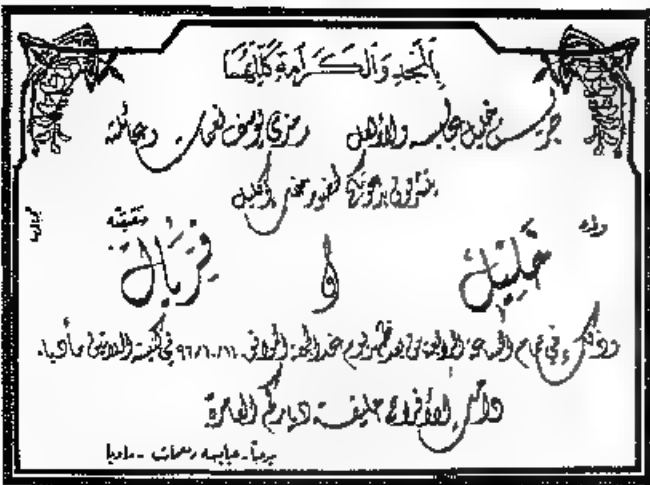 بالمجد والكرامة كللتهما
جريس خليل عبابسه والأهل رمزي يوسف نعمات وعائلته
يتشرفون بدعوتكم لحضور حفل إكليل
ولده شقيقته
خليل و فريال
وذلك في تمام الساعة الرابعة من بعد ظهر يوم غد الجمعة الموافق في كنيسة اللاتين مأدبا.
دامت الأفراح حليفة دياركم العامرة
عبابسه ونعمات - مادبا